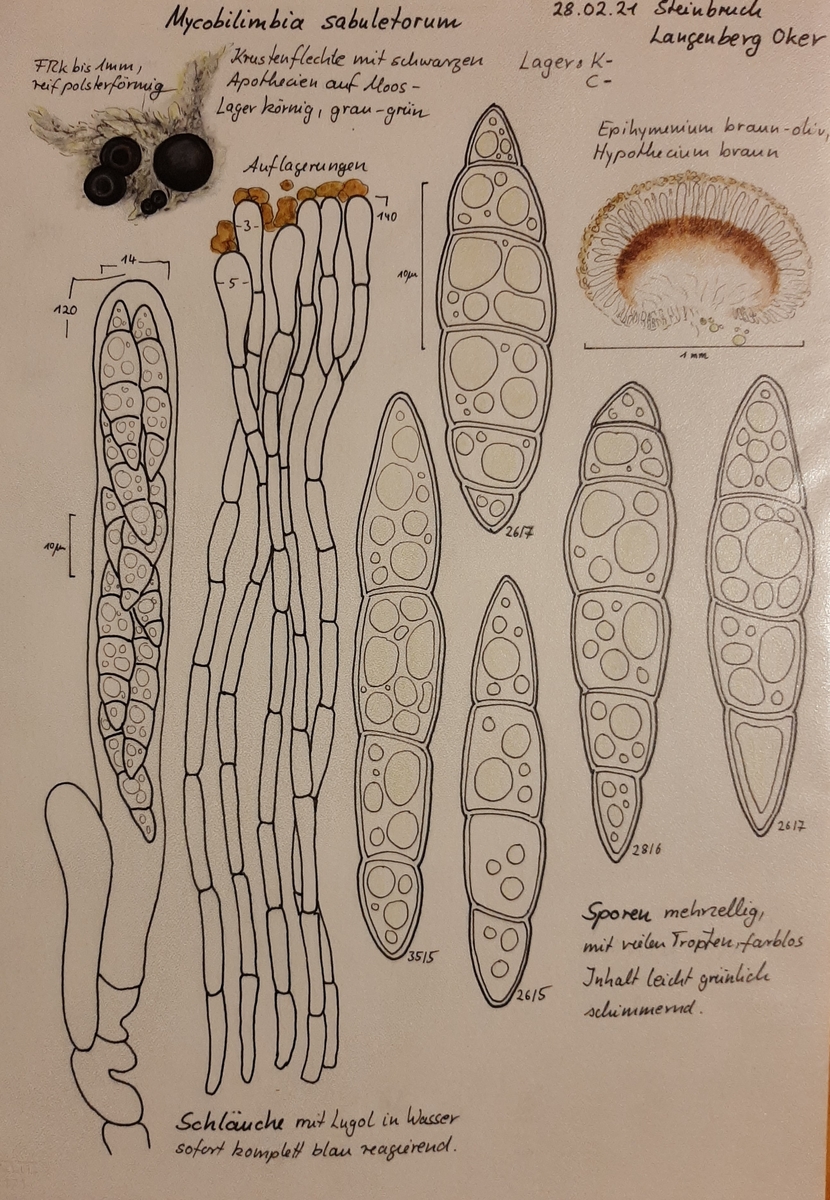 Mycobilimbia sabuletorum
28.02.21 Steinbruch
Langenberg Oker
FRk bis 1mm,
reif polsterförmig
Krustenflechte mit schwarzen
Apothecien auf Moos-
Lager körnig, grau-grün
Lager: K-
C-
Epihymenium braun-oliv,
Hypothecium braun
Auflagerungen
3
140
5
14
120
10µ
10µ
1 mm
26/7
28/6
26/7
35/5
26/5
Sporen mehrzellig,
mit vielen Tropfen, farblos
Inhalt leicht grünlich
schimmernd.
Schläuche mit Lugol in Wasser
sofort komplett blau reagierend.